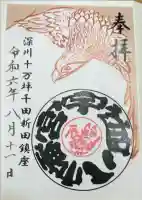 奉拝
宇迦八幡宮
深川十万坪千田新田鎮座
令和六年八月十一日